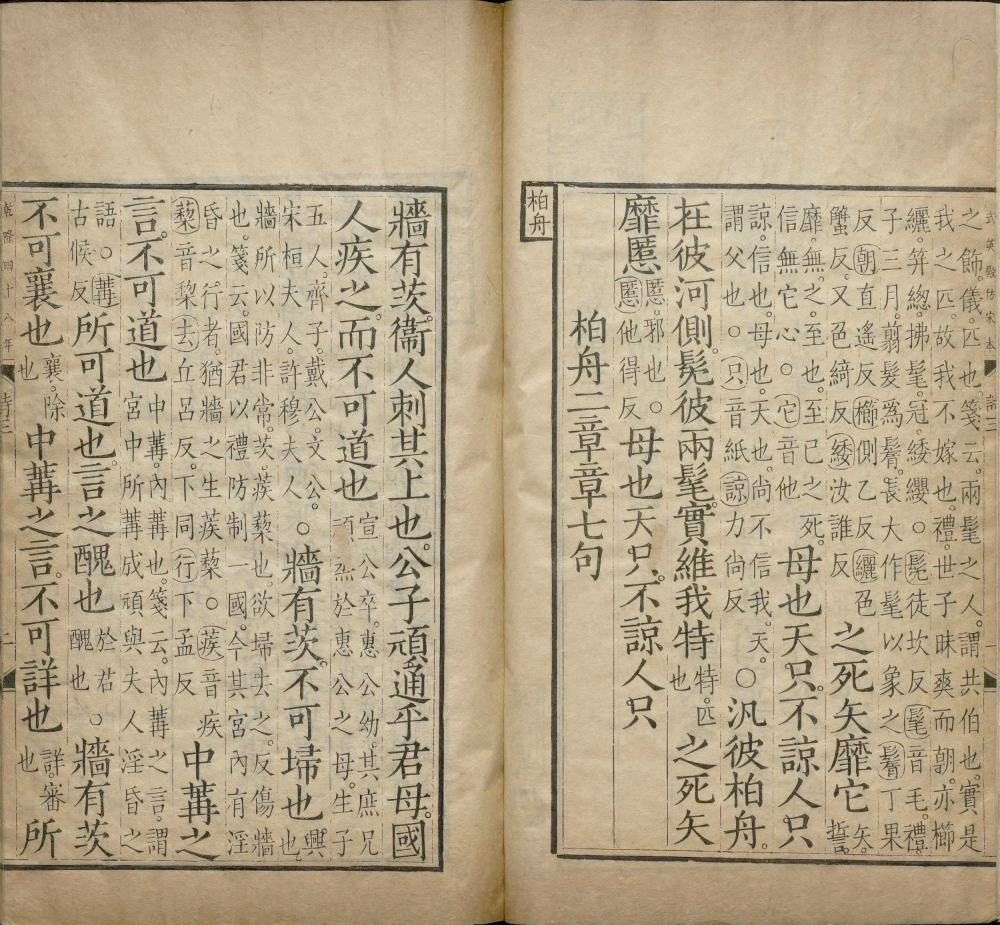 武英殿仿宋本 詩三 一
之飾。儀。匹也。箋云。兩髦之人。謂共伯也。實是
我之匹。故我不嫁也。禮。世子昧爽而朝。亦櫛
纚。笄緫。拂髦。冠。緌纓。○髧徒坎反髦音毛。禮
子三月。翦髮為鬌。長大作髦以象之鬌丁果
反朝直遙反櫛側乙反纚色
蟹反。又色綺反緌汝誰反
之死矢靡它 矢。誓。
靡。無。之。至也。至己之死。
信無它心。○它音他
母也天只。不諒人只
諒。信也。母也。天也。尚不信我。天。
謂父也。○只音紙諒力尚反
○汎彼柏舟。
在彼河側。髧彼兩髦。實維我特 特。匹也 之死矢
靡慝 慝。邪也。○慝他得反 母也天只。不諒人只
柏舟二章章七句
柏舟
牆有茨。衞人刺其上也。公子頑通乎君母。國
人疾之。而不可道也
宣公卒。惠公幼。其庶兄
頑烝於惠公之母。生子
五人。齊子。戴公。文公。
宋桓夫人。許穆夫人。
○牆有茨。不可埽也 興也。
牆所以防非常。茨。蒺藜也。欲埽去之。反傷牆
也。箋云。國君以禮防制一國。今其宮內有淫
昏之行者。猶牆之生蒺藜。○蒺音疾
藜音梨去丘呂反。下同行下孟反
中冓之
言。不可道也
中冓。內冓也。箋云。內冓之言。謂
宮中所冓成頑與夫人淫昏之
語。○冓古候反 所可道也。言之醜也 於君醜也 ○牆有茨
不可襄也 襄。除也 中冓之言。不可詳也 詳。審也 所
乾隆四十八年 詩三 二